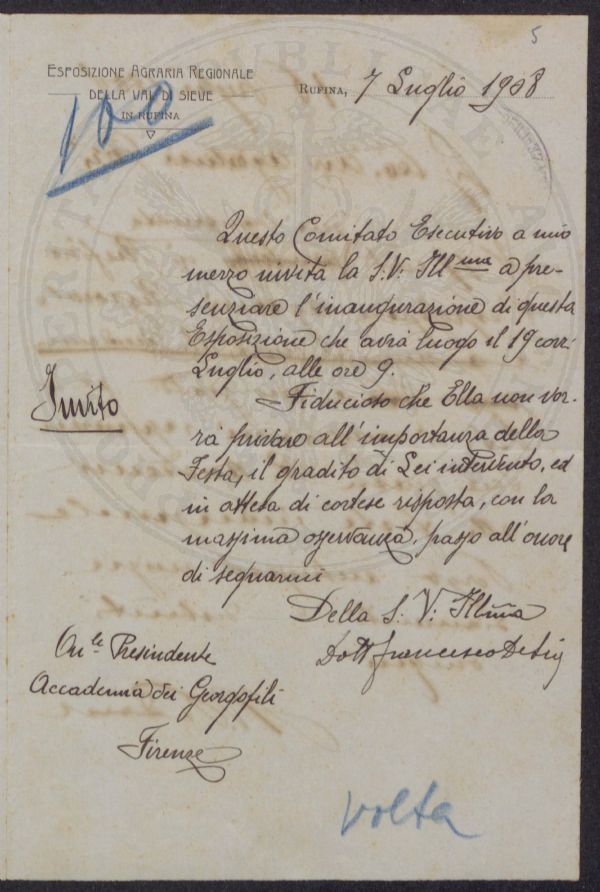 5
ESPOSIZIONE AGRARIA REGIONALE
DELLA VAL DI SIEVE
IN RUFINA
100
RUFINA, 7 Luglio 1908
Questo Comitato Esecutivo a mio
mezzo invita la S.V. Ill ma a pre-
senziare l'inaugurazione di questa
Esposizione che avrà luogo il 19 corr.
Luglio, alle ore 9.
Invito
Fiducioso che Ella non vor-
rà privare all'importanza della
Festa, il gradito di Lei intervento, ed
in attesa di cortese risposta, con la
massima osservanza, passo all'onore
di segnarmi
Della S. V. Illma
Dott Francesco
On.le Presindente
Accademia dei Georgofili
Firenze
volta